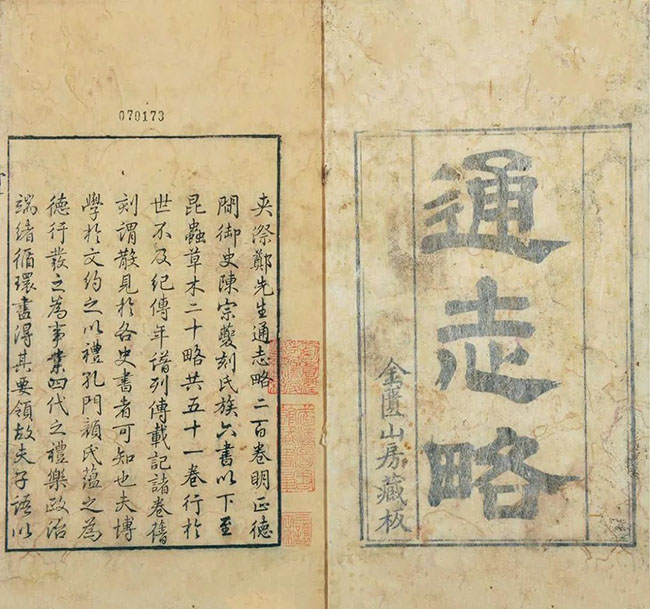 通志略
金匱山房藏板
070173
夾漈鄭先生通志略二百卷明正德
間御史陳宗夔刻氏族六書以下至
昆蟲草木二十略共五十一卷行於
世不及紀傳年譜列傳載記諸卷舊
刻謂散見於各史書者可知也夫博
學於文約之以禮孔門顏氏蘊之為
德行發之為事業四代之禮樂政治
端緒循環盡得其要領故夫子語以